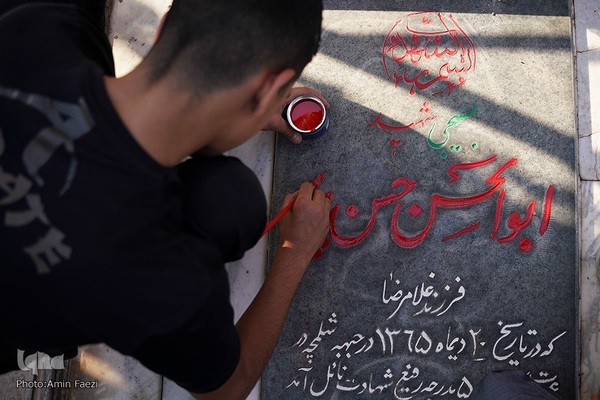 بسیجی شهید
ابوالحسن حسن
فرزند غلامرضا
که در تاریخ ۲۰ دیماه ۱۳۶۵ در جبهه شلمچه در
۵ بدرجه رفیع شهادت نائل آمد
iqna
Photo:Amin Faezi